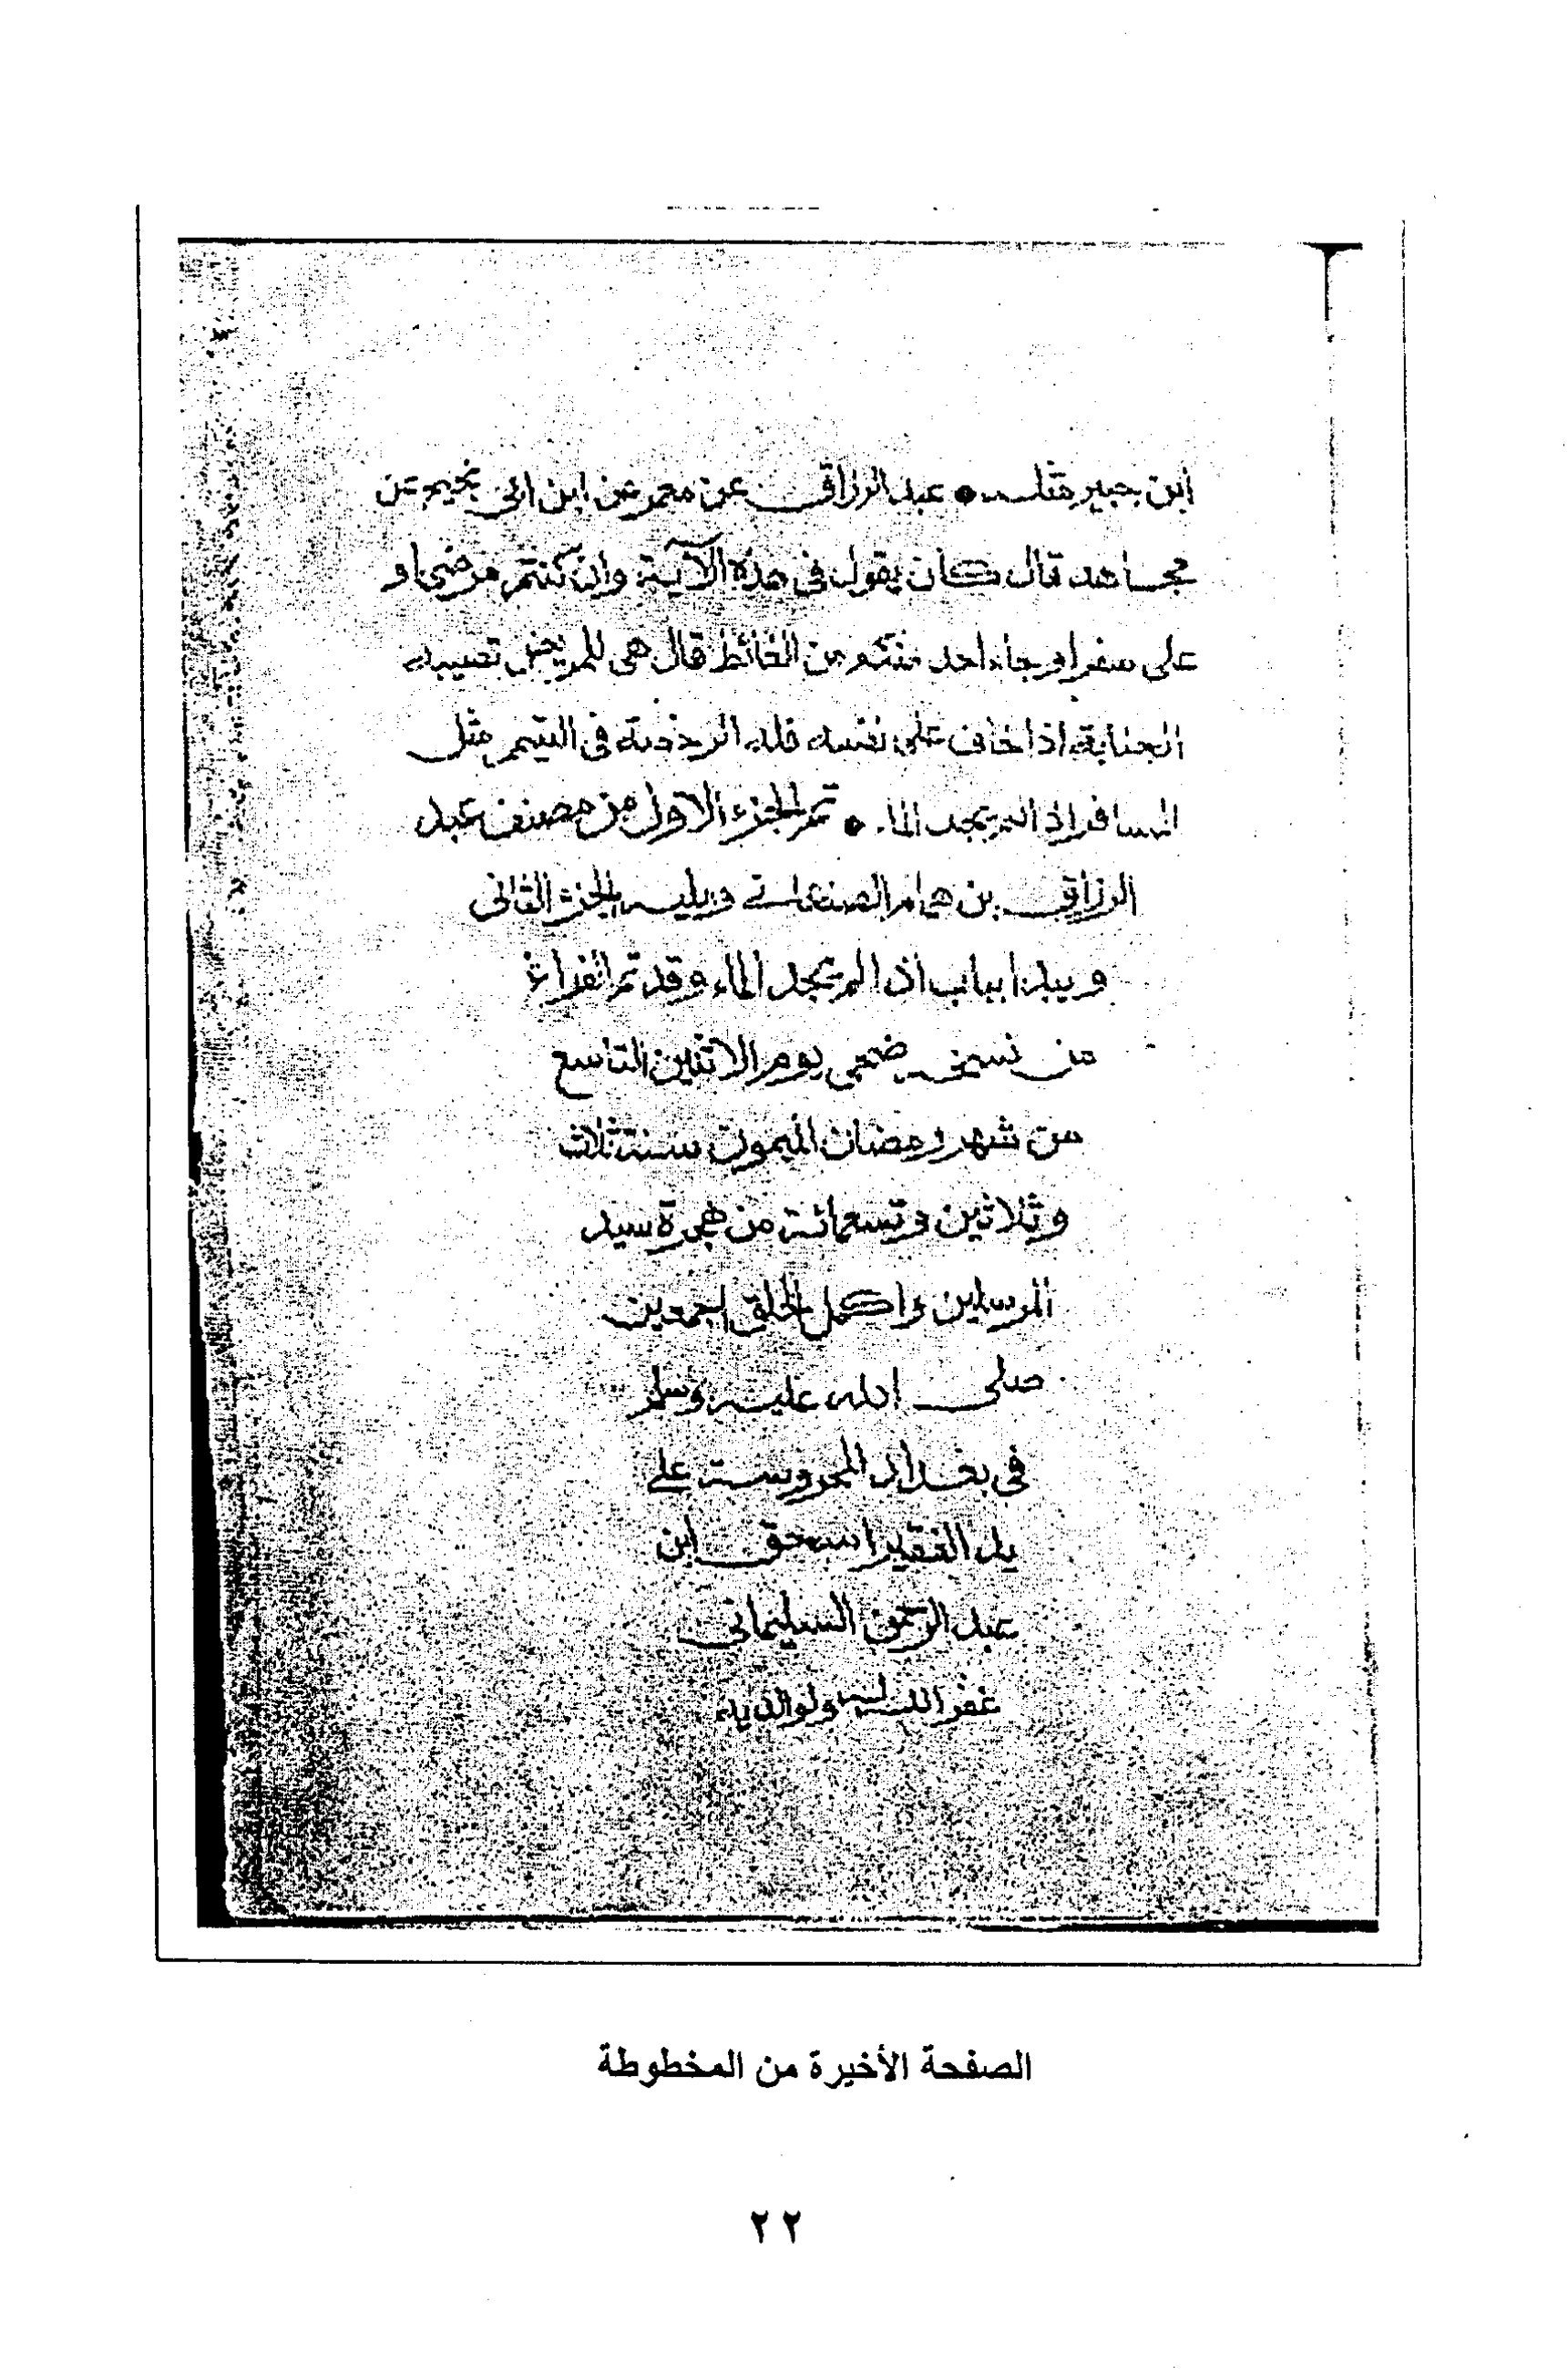 ابن جبير مثله • عبد الرزاق عن معمر عن ابن ابى نجيح عن
مجاهد قال كان يقول فى هذه الآية وان كنتم مرضى او
على سفر او جاء احد منكم من الغائط قال هى للمريض تصيبه
الجنابة اذا خاف على نفسه فله الرخصة فى التيمم مثل
المسافر اذا لم يجد الماء • تم الجزء الاول من مصنف عبد
الرزاق بن همام الصنعانى ويليه الجزء الثانى
ويبدا بباب اذا لم يجد الماء وقد تم الفراغ
من نسخه ضحى يوم الاثنين التاسع
من شهر رمضان الميمون سنة ثلاث
وثلاثين وتسعمائة من هجرة سيد
المرسلين واكمل الخلق اجمعين
صلى الله عليه وسلم
فى بغداد المحروسة على
يد الفقير اسحق ابن
عبد الرحمن السليمانى
غفر الله له ولوالديه
الصفحة الأخيرة من المخطوطة
٢٢